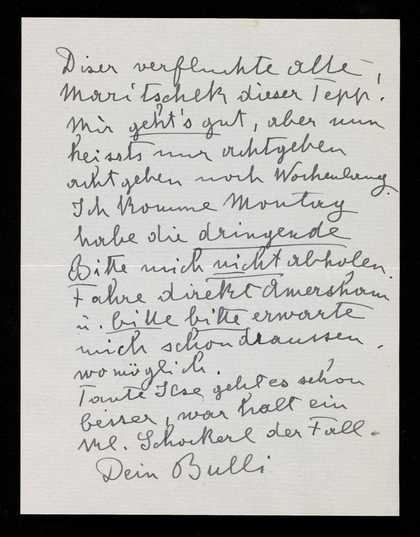 Diser verfluchte alte,
Maritschek dieser Tepp.
Mir geht's gut, aber nun
heissts nur achtgeben
achtgeben noch Wochenlang.
Ich komme Montag
habe die dringende
Bitte mich nicht abholen.
Fahre direkt Amersham
u. bitte bitte erwarte
mich schon draussen.
womöglich.
Tante Ilse geht es schon
besser, war halt ein
kl. Schockerl der Fall.
Dein Bulli